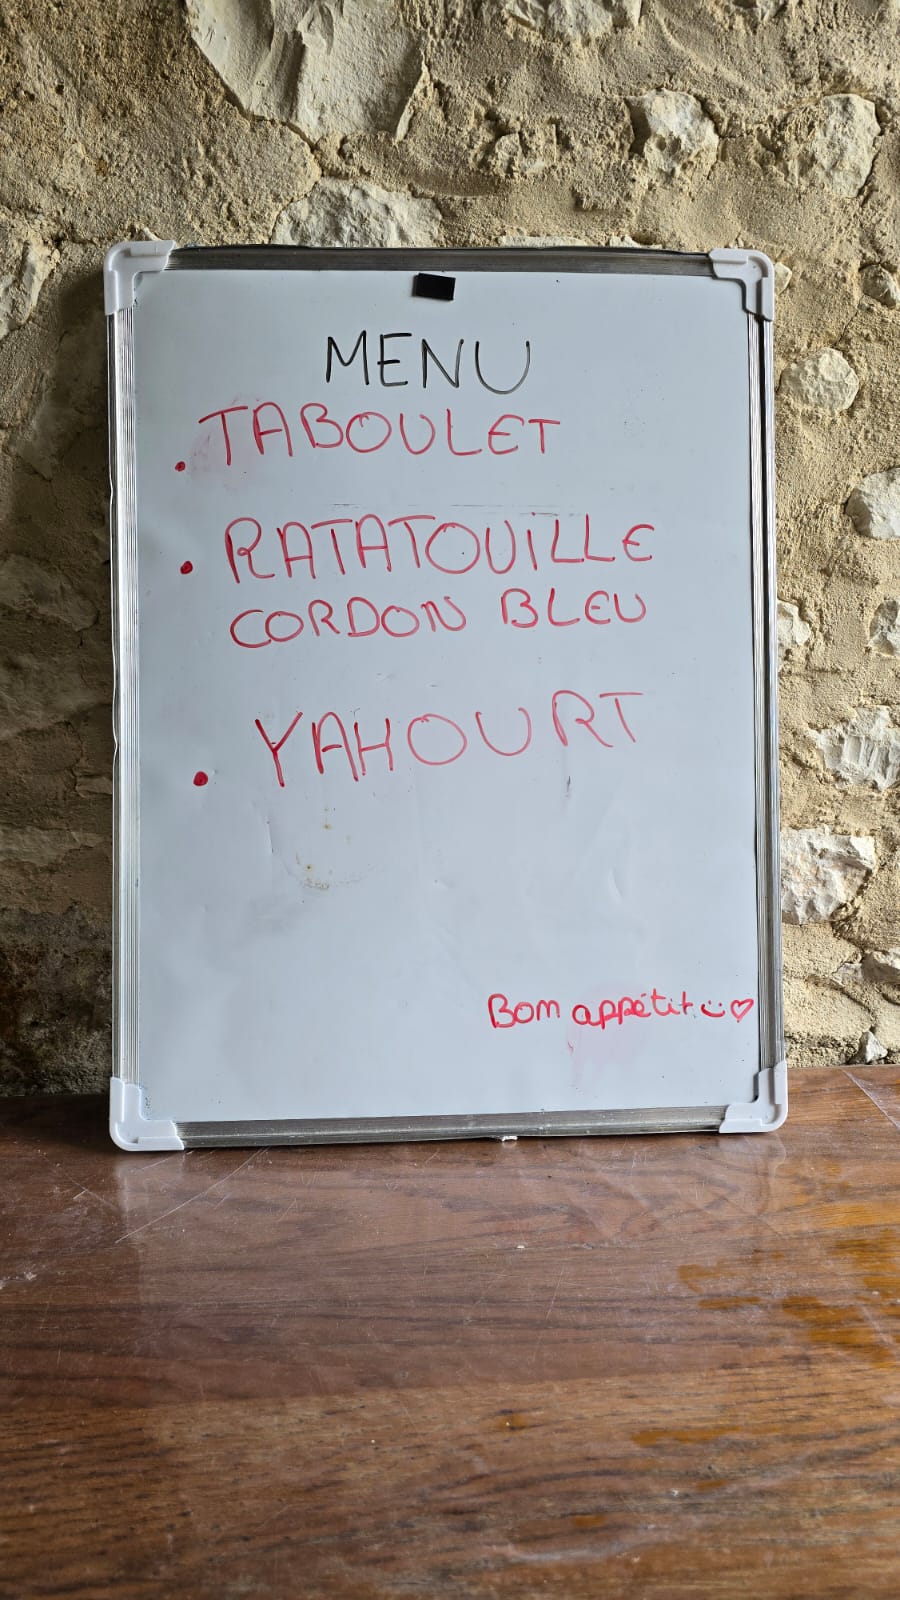 MENU
. TABOULET
. RATATOUILLE
CORDON BLEU
. YAHOURT
Bom appétit